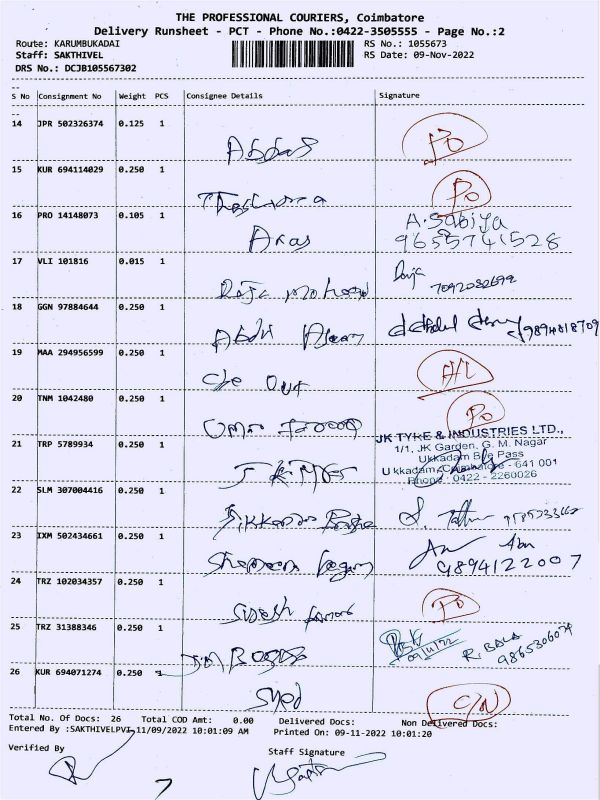 THE PROFESSIONAL COURIERS, Coimbatore
Delivery Runsheet - PCT - Phone No.:0422-3505555 - Page No.:2
Route: KARUMBUKADAI RS No.: 1055673
Staff: SAKTHIVEL RS Date: 09-Nov-2022
DRS No.: DCJB105567302
S No Consignment No Weight PCS Consignee Details Signature
14 JPR 502326374 0.125 1 Abbas PO
15 KUR 694114029 0.250 1 PO
16 PRO 14148073 0.105 1 Aras A. Sabiya
9655741528
17 VLI 101816 0.015 1 Raja Mohamed Raja
7092032699
18 GGN 97884644 0.250 1 Abdul
19 MAA 294956599 0.250 1 C/e Out
20 TNM 1042480 0.250 1 PO
21 TRP 5789934 0.250 1 JK Tyres JK TYRE & INDUSTRIES LTD.,
1/1, JK Garden, G. M. Nagar
Ukkadam Big Pass
Ukkadam, Coimbatore - 641 001
Phone: 0422 - 2260026
22 SLM 307004416 0.250 1
23 IXM 502434661 0.250 1 Abu
9894122007
24 TRZ 102034357 0.250 1 PO
25 TRZ 31388346 0.250 1 09/11/22 R. BALA
9865306074
26 KUR 694071274 0.250 1 Syed C/N
Total No. Of Docs: 26 Total COD Amt: 0.00 Delivered Docs: Non Delivered Docs:
Entered By :SAKTHIVELPVI 11/09/2022 10:01:09 AM Printed On: 09-11-2022 10:01:20
Verified By Staff Signature